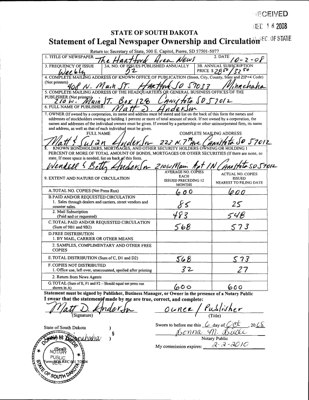 RECEIVED
DEC 16 2008
SEC OF STATE
STATE OF SOUTH DAKOTA
Statement of Legal Newspaper Ownership and Circulation
Return to: Secretary of State, 500 E. Capitol, Pierre, SD 57501-5077
1. TITLE OF NEWSPAPER The Hartford Area News
2. DATE 10-2-08
3. FREQUENCY OF ISSUE Weekly
3A. NO. OF ISSUES PUBLISHED ANNUALLY 52
3B. ANNUAL SUBSCRIPTION PRICE
4. COMPLETE MAILING ADDRESS OF KNOWN OFFICE OF PUBLICATION (Street, City, County, State and ZIP+4 Code)
(Not printer) N. Main St. Hartford SD 57033 Minnehaha
5. COMPLETE MAILING ADDRESS OF THE HEADQUARTERS OR GENERAL BUSINESS OFFICES OF THE
PUBLISHER (Not printer) 210 W. Main St. Box 128 Canistota SD 57012
6. FULL NAME OF PUBLISHER: Matt D. Anderson
7. OWNER (If owned by a corporation, its name and address must be stated and also the names and
addresses of stockholders owning or holding 1 percent or more of total amount of stock. If not owned by a corporation, the
names and addresses of the individual owners must be given. If owned by a partnership or other unincorporated firm, its name
and address, as well as that of each individual must be given.
FULL NAME COMPLETE MAILING ADDRESS
Matt & Susan Anderson Canistota SD 57012
8. KNOWN BONDHOLDERS, MORTGAGEES, AND OTHER SECURITY HOLDERS OWNING OR HOLDING 1
PERCENT OR MORE OF TOTAL AMOUNT OF BONDS, MORTGAGES OR OTHER SECURITIES (If there are none, so
state. If more space is needed, list on back of this form.
& Betty Anderson Canistota SD 57012
9. EXTENT AND NATURE OF CIRCULATION
AVERAGE NO. COPIES EACH ISSUES PRECEDING 12 MONTHS
ACTUAL NO. COPIES ISSUED NEAREST TO FILING DATE
A. TOTAL NO. COPIES (Net Press Run) 600 600
B. PAID AND/OR REQUESTED CIRCULATION
1. Sales through dealers and carriers, street vendors and
counter sales. 85 25
2. Mail Subscription
(Paid and/or requested) 483 548
C. TOTAL PAID AND/OR REQUESTED CIRCULATION
(Sum of 9B1 and 9B2) 568 573
D. FREE DISTRIBUTION
1. BY MAIL, CARRIER OR OTHER MEANS
2. SAMPLES, COMPLIMENTARY AND OTHER FREE
COPIES
E. TOTAL DISTRIBUTION (Sum of C, D1 and D2) 568 573
F. COPIES NOT DISTRIBUTED
1. Office use, left over, unaccounted, spoiled after printing 32 27
2. Return from News Agents
G. TOTAL (Sum of E, F1 and F2 - Should equal net press run
shown in A) 600 600
Statement must be signed by Publisher, Business Manager, or Owner in the presence of a Notary Public
I swear that the statements made by me are true, correct, and complete:
Matt D. Anderson owner / Publisher
(Signature) (Title)
State of South Dakota )
Sworn to before me this 6 day of Oct, 2008
Notary Public
My commission expires: 2-2-2010
NOTARY
PUBLIC
SOUTH DAKOTA